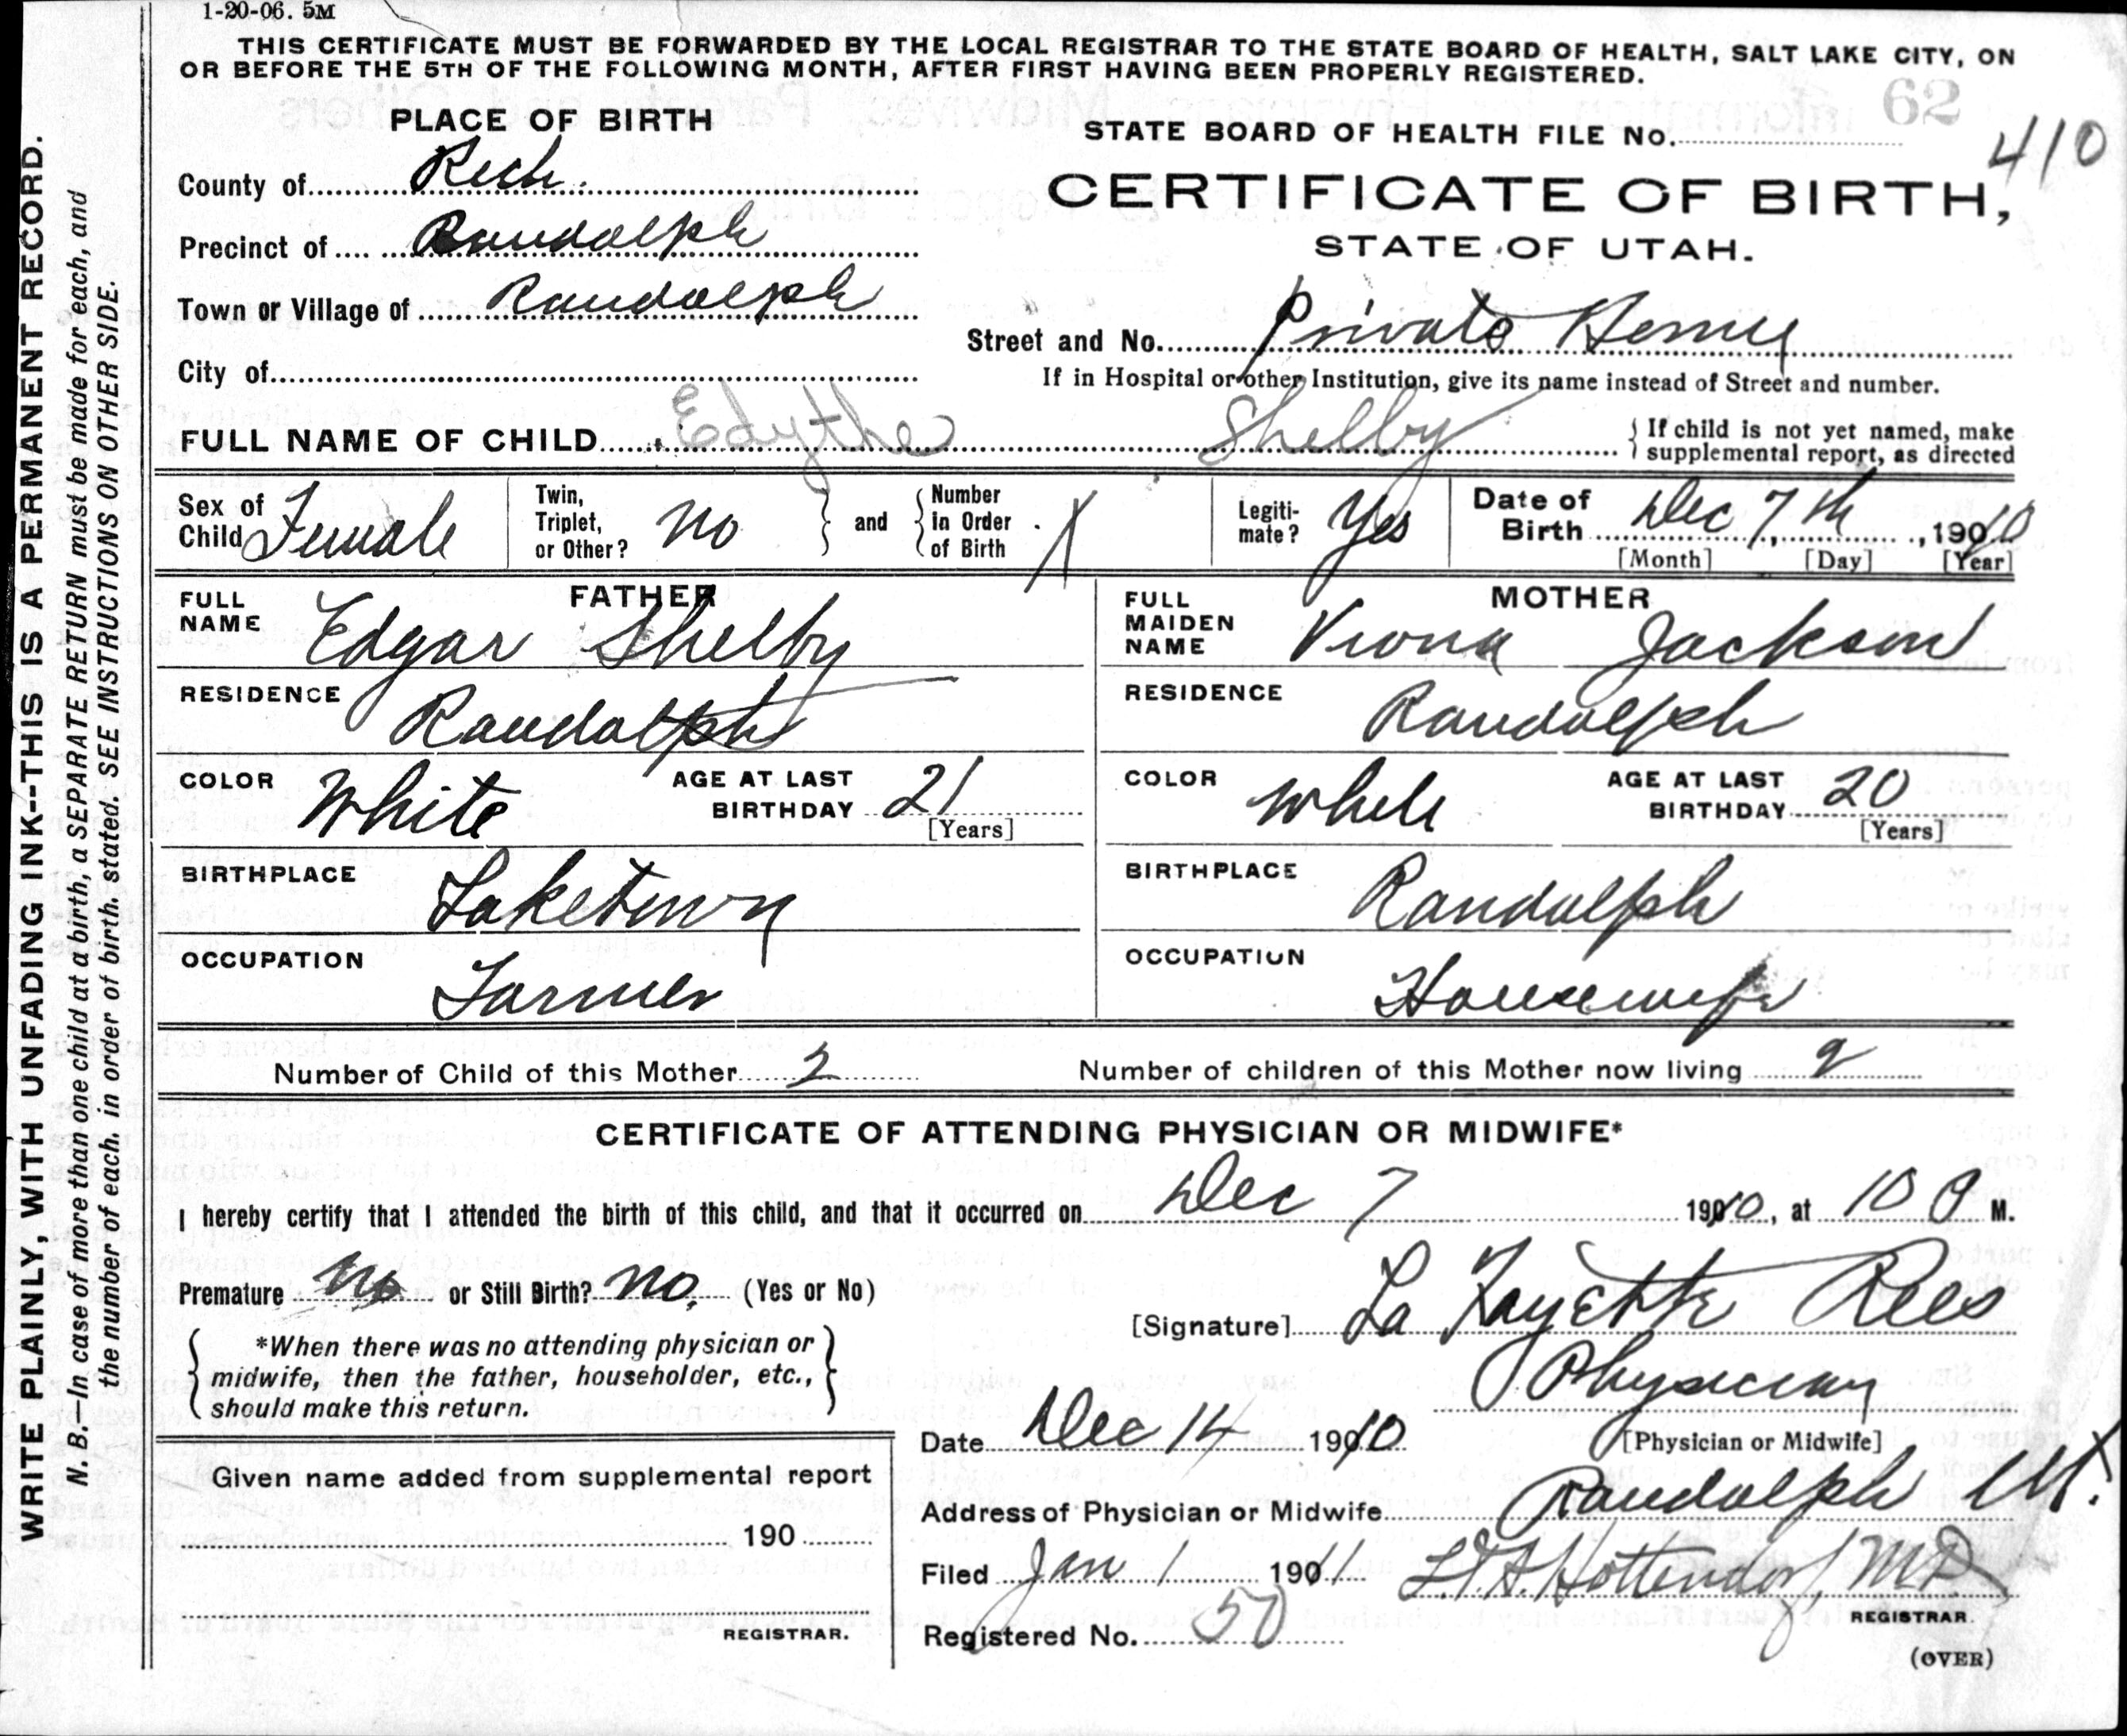 1-20-06. 5M
THIS CERTIFICATE MUST BE FORWARDED BY THE LOCAL REGISTRAR TO THE STATE BOARD OF HEALTH, SALT LAKE CITY, ON
OR BEFORE THE 5TH OF THE FOLLOWING MONTH, AFTER FIRST HAVING BEEN PROPERLY REGISTERED.
62
410
PLACE OF BIRTH
STATE BOARD OF HEALTH FILE No.
County of Rich.
CERTIFICATE OF BIRTH,
STATE OF UTAH.
Precinct of Randolph
Town or Village of Randolph
Street and No. Private Home
City of
If in Hospital or other Institution, give its name instead of Street and number.
FULL NAME OF CHILD Edythe Shelby
If child is not yet named, make
supplemental report, as directed
Sex of Child Female
Twin, Triplet, or Other? No
and Number in Order of Birth
Legitimate? Yes
Date of Birth Dec 7th, 1910
[Month] [Day] [Year]
FATHER
FULL NAME Edgar Shelby
RESIDENCE Randolph
COLOR White
AGE AT LAST BIRTHDAY 21
[Years]
BIRTHPLACE Laketown
OCCUPATION Farmer
MOTHER
FULL MAIDEN NAME Viona Jackson
RESIDENCE Randolph
COLOR White
AGE AT LAST BIRTHDAY 20
[Years]
BIRTHPLACE Randolph
OCCUPATION Housewife
Number of Child of this Mother 2
Number of children of this Mother now living 2
CERTIFICATE OF ATTENDING PHYSICIAN OR MIDWIFE*
I hereby certify that I attended the birth of this child, and that it occurred on Dec 7 1910, at 10 P M.
Premature No or Still Birth? No. (Yes or No)
*When there was no attending physician or
midwife, then the father, householder, etc.,
should make this return.
[Signature] La Fayette Rees
Physician
[Physician or Midwife]
Date Dec 14 1910
Address of Physician or Midwife Randolph Ut.
Filed Jan 1 1911
Hottendorf, MD
REGISTRAR.
Registered No. 50
(OVER)
Given name added from supplemental report
190
REGISTRAR.
WRITE PLAINLY, WITH UNFADING INK--THIS IS A PERMANENT RECORD.
N. B.—In case of more than one child at a birth, a SEPARATE RETURN must be made for each, and
the number of each, in order of birth, stated. SEE INSTRUCTIONS ON OTHER SIDE.